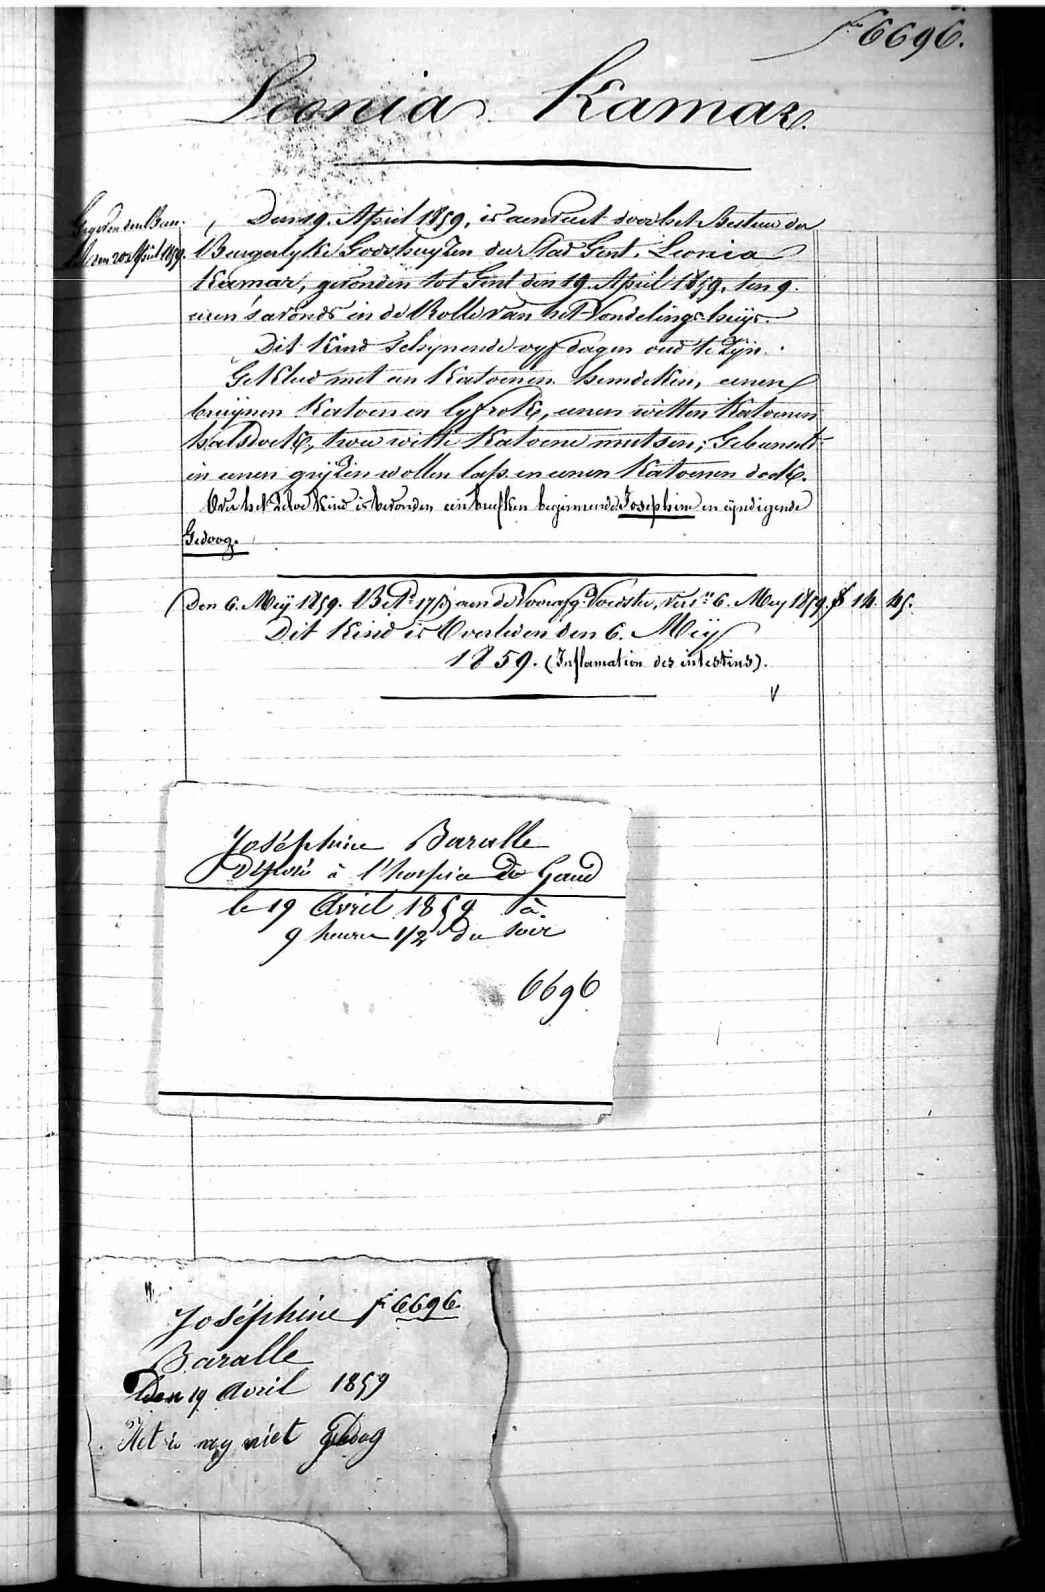 fo 6696.
Leonia Kamar.
Gegeven den
den 20 April 1859.
Den 19. April 1859, is aenveert door het Bestuer der
Burgerlyke Godshuyzen der Stad Gent, Leonia
Kamar, gevonden tot Gent den 19. April 1859, ten 9.
uren s'avonds in de Rolle van het Vondelings-huys.
Dit Kind schynende vyf dagen oud te zyn.
Gekleed met een Katoenen hemdeken, eenen
bruynen Katoenen lyfrok, eenen witten Katoenen
halsdoek, twee witte Katoene mutsen; Gebunseld
in eenen gryzen wollen laps en eenen Katoenen doek.
Over het zelve Kind is bevonden een briefken beginnende Josephine en eyndigende
Gedoog.
Den 6. Mey 1859. Bet. 17/ aen de Voorafg. Voedster, vers. 6. Mey 1859. f 14. 45.
Dit Kind is Overleden den 6. Mey
1859. (Inflamation des intestins).
Joséphine Baralle
Déposé à l'hospice de Gand
le 19 Avril 1859 à
9 heures 1/2 du soir
6696
Joséphine fo 6696.
Baralle
Den 19 Avril 1859
Het is nog niet Gedoog